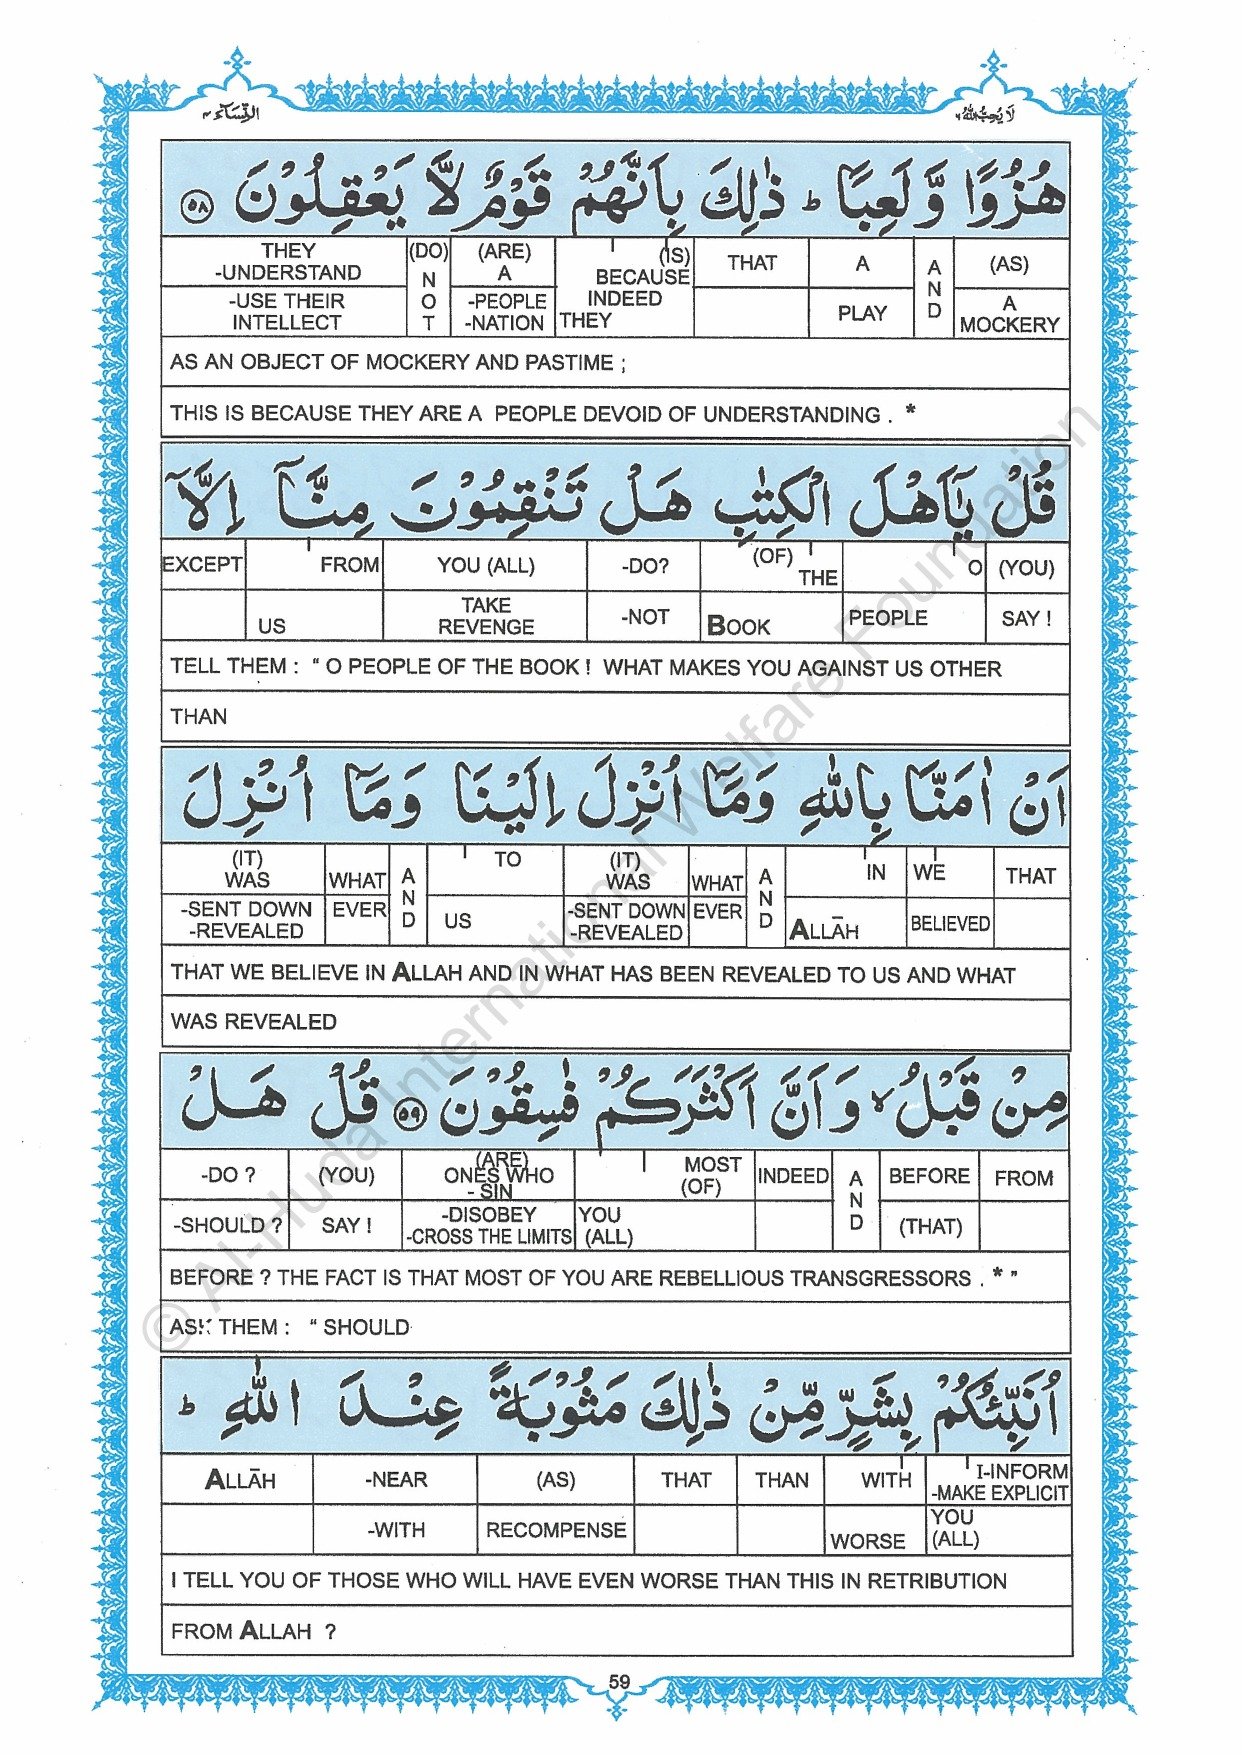 النِّسَآء ٤
لَا یُحِبُّ اللّٰهُ ٦
هُزُوًا وَّ لَعِبًا ؕ ذٰلِكَ بِاَنَّهُمْ قَوْمٌ لَّا یَعْقِلُوْنَ ۝۵۸
THEY (DO) (ARE) (IS) THAT A A (AS)
-UNDERSTAND NOT A BECAUSE AND
-USE THEIR -PEOPLE INDEED PLAY A
INTELLECT -NATION THEY MOCKERY
AS AN OBJECT OF MOCKERY AND PASTIME ;
THIS IS BECAUSE THEY ARE A PEOPLE DEVOID OF UNDERSTANDING . *
قُلْ یٰۤاَهْلَ الْكِتٰبِ هَلْ تَنْقِمُوْنَ مِنَّاۤ اِلَّاۤ
EXCEPT FROM YOU (ALL) -DO? (OF) THE O (YOU)
US TAKE REVENGE -NOT BOOK PEOPLE SAY !
TELL THEM : “ O PEOPLE OF THE BOOK ! WHAT MAKES YOU AGAINST US OTHER
THAN
اَنْ اٰمَنَّا بِاللّٰهِ وَمَاۤ اُنْزِلَ اِلَیْنَا وَمَاۤ اُنْزِلَ
(IT) WAS WHAT AND TO (IT) WAS WHAT AND IN WE THAT
-SENT DOWN EVER US -SENT DOWN EVER ALLĀH BELIEVED
-REVEALED -REVEALED
THAT WE BELIEVE IN ALLAH AND IN WHAT HAS BEEN REVEALED TO US AND WHAT
WAS REVEALED
مِنْ قَبْلُ ۙ وَ اَنَّ اَكْثَرَكُمْ فٰسِقُوْنَ ۝۵۹ قُلْ هَلْ
-DO ? (YOU) (ARE) ONES WHO - SIN MOST (OF) INDEED AND BEFORE FROM
-SHOULD ? SAY ! -DISOBEY YOU (THAT)
-CROSS THE LIMITS (ALL)
BEFORE ? THE FACT IS THAT MOST OF YOU ARE REBELLIOUS TRANSGRESSORS . * ”
ASK THEM : “ SHOULD
اُنَبِّئُكُمْ بِشَرٍّ مِّنْ ذٰلِكَ مَثُوْبَةً عِنْدَ اللّٰهِ ؕ
ALLĀH -NEAR (AS) THAT THAN WITH I-INFORM
-MAKE EXPLICIT
-WITH RECOMPENSE WORSE YOU (ALL)
I TELL YOU OF THOSE WHO WILL HAVE EVEN WORSE THAN THIS IN RETRIBUTION
FROM ALLAH ?
59
© Al-Huda International Welfare Foundation